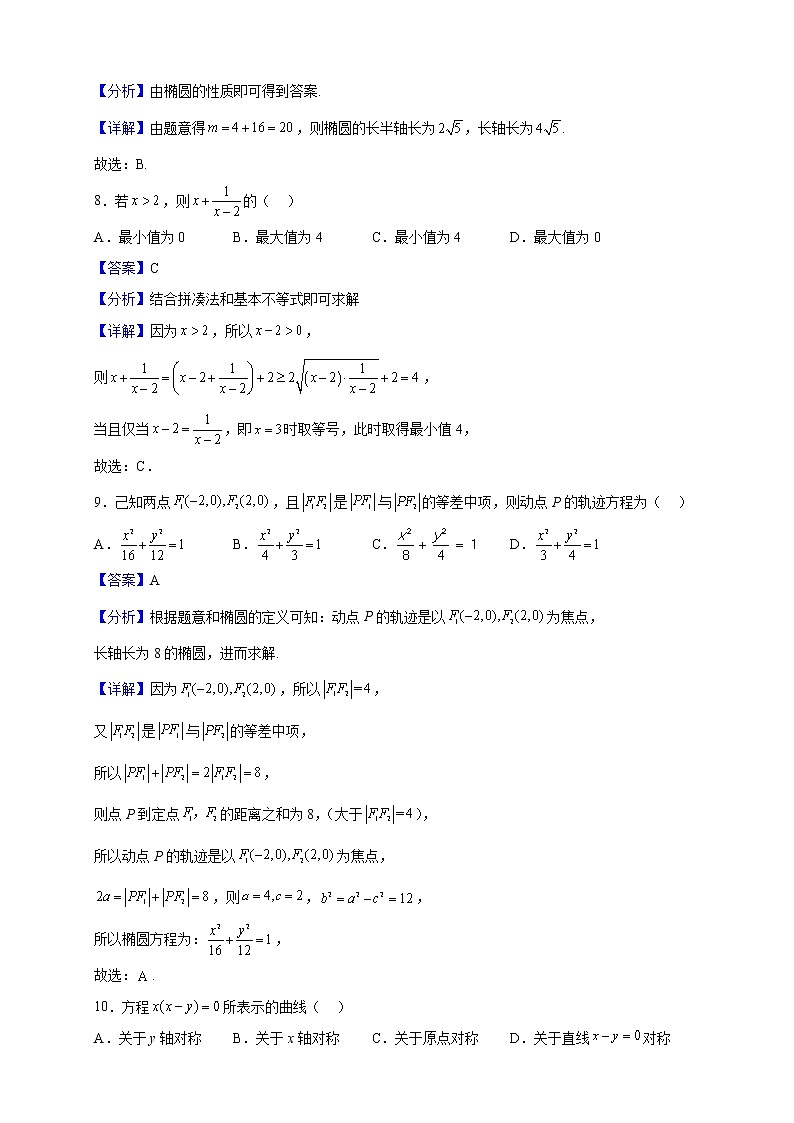 【分析】由椭圆的性质即可得到答案.
【详解】由题意得 m = 4 + 16 = 20，则椭圆的长半轴长为 2√5，长轴长为 4√5.
故选：B.
8．若 x > 2，则 x + 1/(x − 2) 的（　）
A．最小值为 0　B．最大值为 4　C．最小值为 4　D．最大值为 0
【答案】C
【分析】结合拼凑法和基本不等式即可求解
【详解】因为 x > 2，所以 x − 2 > 0，
则 x + 1/(x − 2) = (x − 2 + 1/(x − 2)) + 2 ≥ 2√((x − 2)·1/(x − 2)) + 2 = 4，
当且仅当 x − 2 = 1/(x − 2)，即 x = 3 时取等号，此时取得最小值 4，
故选：C．
9．己知两点 F₁(−2,0), F₂(2,0)，且 |F₁F₂| 是 |PF₁| 与 |PF₂| 的等差中项，则动点 P 的轨迹方程为（　）
A．x²/16 + y²/12 = 1　B．x²/4 + y²/3 = 1　C．x²/8 + y²/4 = 1　D．x²/3 + y²/4 = 1
【答案】A
【分析】根据题意和椭圆的定义可知：动点 P 的轨迹是以 F₁(−2,0), F₂(2,0) 为焦点，
长轴长为 8 的椭圆，进而求解.
【详解】因为 F₁(−2,0), F₂(2,0)，所以 |F₁F₂| = 4，
又 |F₁F₂| 是 |PF₁| 与 |PF₂| 的等差中项，
所以 |PF₁| + |PF₂| = 2|F₁F₂| = 8，
则点 P 到定点 F₁，F₂ 的距离之和为 8，（大于 |F₁F₂| = 4），
所以动点 P 的轨迹是以 F₁(−2,0), F₂(2,0) 为焦点，
2a = |PF₁| + |PF₂| = 8，则 a = 4, c = 2，b² = a² − c² = 12，
所以椭圆方程为：x²/16 + y²/12 = 1，
故选：A．
10．方程 x(x − y) = 0 所表示的曲线（　）
A．关于 y 轴对称　B．关于 x 轴对称　C．关于原点对称　D．关于直线 x − y = 0 对称